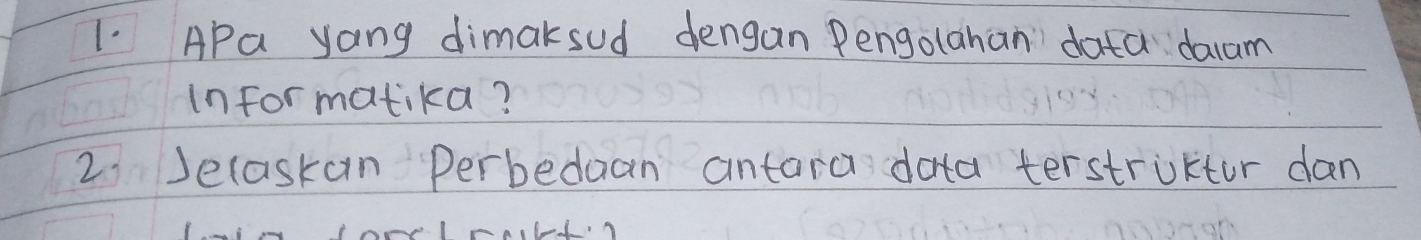 1. APa yang dimaksud dengan Pengolahan data dalam
informatika?
2. Jelaskan Perbedaan antara data terstruktur dan